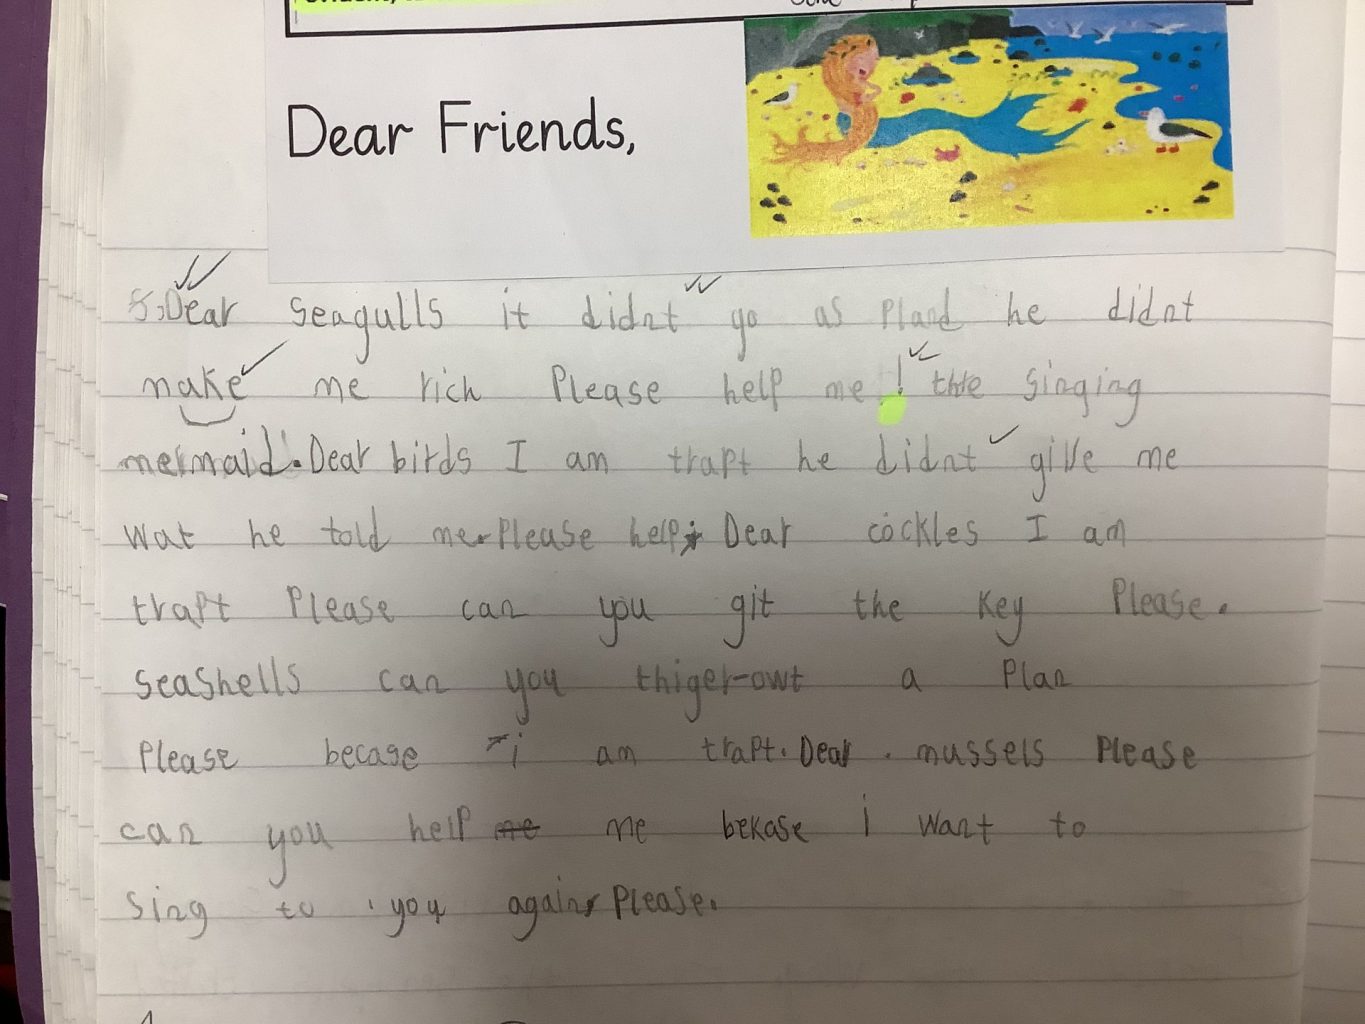 Dear Friends,
Dear seagulls it didnt go as pland he didnt
make me rich Please help me! the singing
mermaid. Dear birds I am trapt he didnt give me
wat he told me. Please help. Dear cockles I am
trapt Please can you git the key Please.
seashells can you thiger-owt a plan
Please becase i am trapt. Dear mussels Please
can you help me me bekase i want to
sing to you again Please.